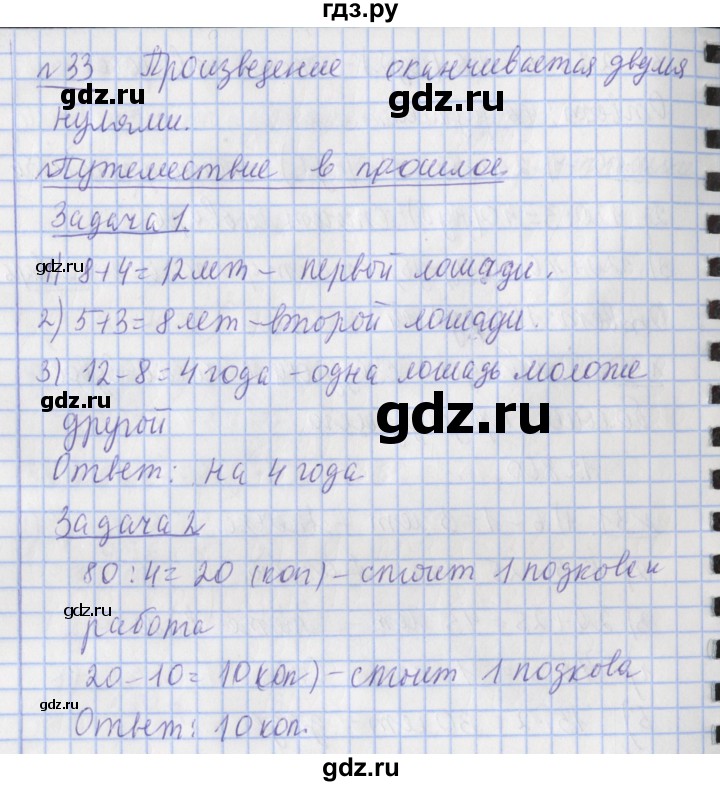 гдз.ру
№33 Произведение оканчивается двумя
gdz.ru
нулями.
gdz.ru
Путешествие в прошлое.
gdz.ru
Задача 1.
gdz.ru
1) 8+4=12 лет – первой лошади.
gdz.ru
2) 5+3=8 лет – второй лошади.
3) 12-8=4 года – одна лошадь моложе
gdz.ru
gdz.ru
другой
Ответ: на 4 года
gdz.ru
Задача 2
gdz.ru
80:4=20 (коп) – стоит 1 подкова и
gdz.ru
работа
gdz.ru
20-10=10 коп) – стоит 1 подкова
gdz.ru
Ответ: 10 коп.
gdz.ru
gdz.ru